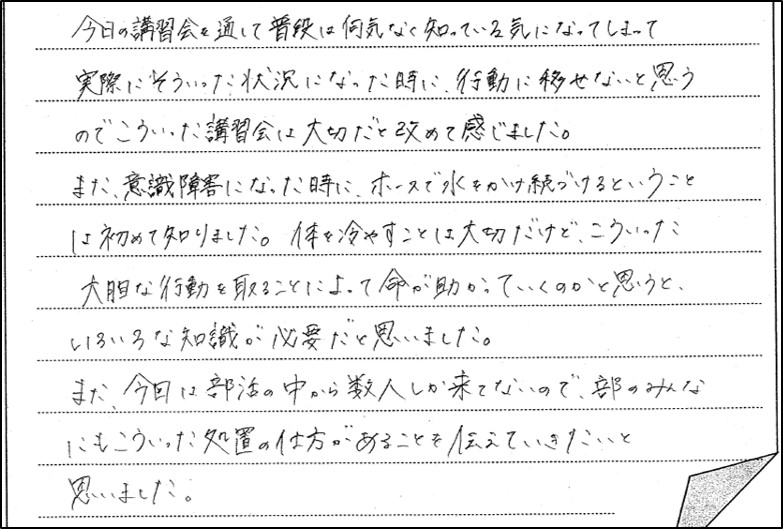 今日の講習会を通して普段は何気なく知っている気になってしまって
実際にそういった状況になった時に、行動に移せないと思う
のでこういった講習会は大切だと改めて感じました。
また、意識障害になった時に、ホースで水をかけ続づけるということ
は初めて知りました。体を冷やすことは大切だけど、こういった
大胆な行動を取ることによって命が助かっていくのかと思うと、
いろいろな知識が必要だと思いました。
また、今日は部活の中から数人しか来てないので、部のみんな
にもこういった処置の仕方があることを伝えていきたいと
思いました。